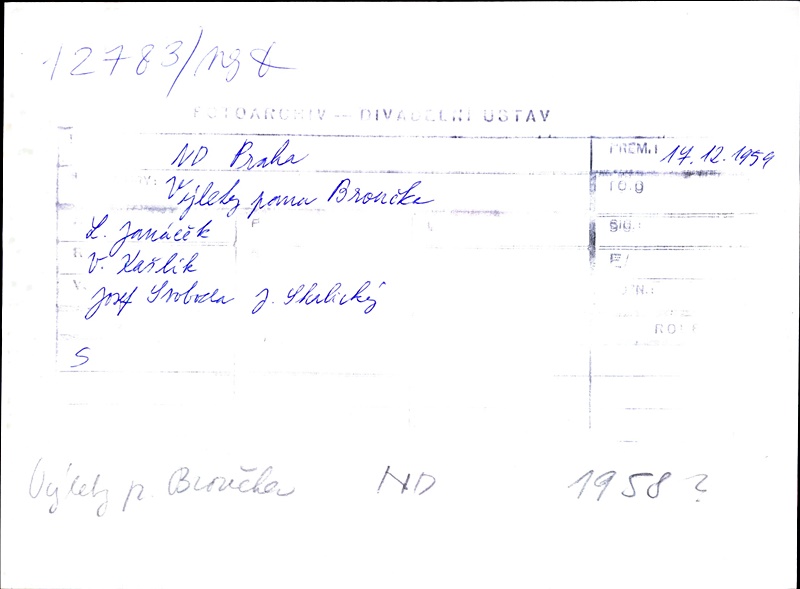 12783/
FOTOARCHIV — DIVADELNÍ ÚSTAV
ND Praha
PREM.: 17.12.1959
Výlety pana Broučka
L. Janáček
Sig.:
V. Kašlík
Josef Svoboda J. Skalický
ROLE
S
Výlety p. Broučka ND 1958?